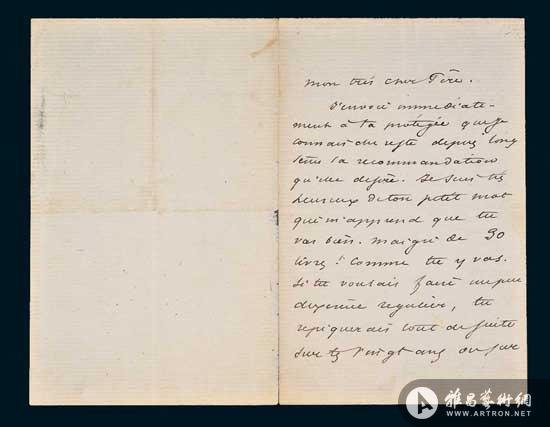 mon très cher Père.
J'envoie immédiate-
ment à ta protégée que je
connais du reste depuis long
temps la recommandation
qu'elle désire. Je suis très
heureux de ton petit mot
qui m'apprend que tu
vas bien. maigri de 30
livres! Comme tu y vas.
Si tu voulais faire un peu
d'exercice régulier, tu
repiquerais tout de suite
sur tes vingt ans ou sur
雅昌藝術網
WWW.ARTRON.NET